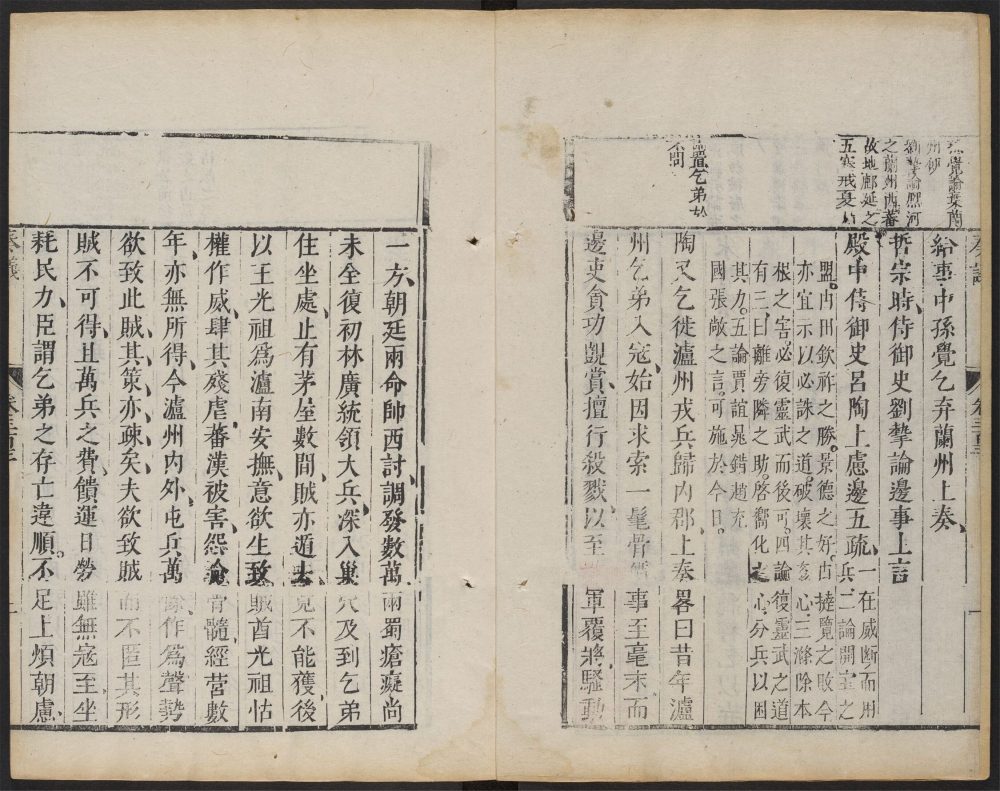 孫覺論棄蘭
州
劉摯論熙河
之蘭州西蕃
故地鄜延之
五寨戒夏
論置乞弟於
不問
奏議
卷三百三
給事中孫覺乞弃蘭州上奏
哲宗時侍御史劉摯論邊事上言
殿中侍御史呂陶上慮邊五疏一在威斷而用兵二論開室之
盟西田欽祚之勝景德之好古撻覽之敗今
亦宜示以必誅之道破壞其姦心三滌除本
根之害必復靈武而後可四論復靈武之道
有三曰離旁隣之助啓嚮化之心分兵以困
其力五論賈誼晁錯趙充
國張敞之言可施於今日
陶又乞徙瀘州戎兵歸内郡上奏畧曰昔年瀘
州乞弟入寇始因求索一髦骨償事至毫末而
邊吏貪功覬賞擅行殺戮以至軍覆將騷動
一方朝廷兩命帥西討調發數萬兩蜀瘡癡尚
未全復初林廣統領大兵深入巢穴及到乞弟
住坐處止有茅屋數間賊亦遁去竟不能獲後
以王光祖爲瀘南安撫意欲生致賊酋光祖怙
權作威肆其殘虐蕃漢被害怨淪骨髓經營數
年亦無所得今瀘州内外屯兵萬餘作爲聲勢
欲致此賊其策亦疎矣夫欲致賊而不匿其形
賊不可得且萬兵之費饋運日勞雖無寇至坐
耗民力臣謂乞弟之存亡違順不足上煩朝慮
奏議
卷三百三